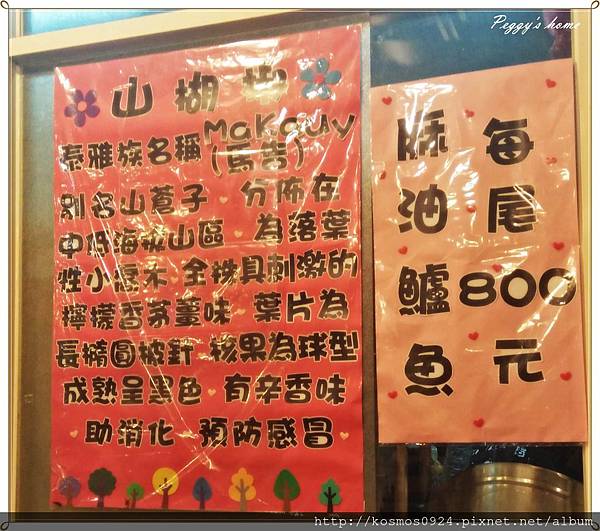 Peggy's home
山胡椒
泰雅族名稱 Makauy
(馬告)
別名山蒼子 分佈在
中低海拔山區 為落葉
性小喬木 全株具刺激的
檸檬香茅薑味 葉片為
長橢圓披針 核果為球型
成熟呈黑色 有辛香味
助消化 預防感冒
每尾800元
酥油鱸魚
http://kosmos0924.pixnet.net/album